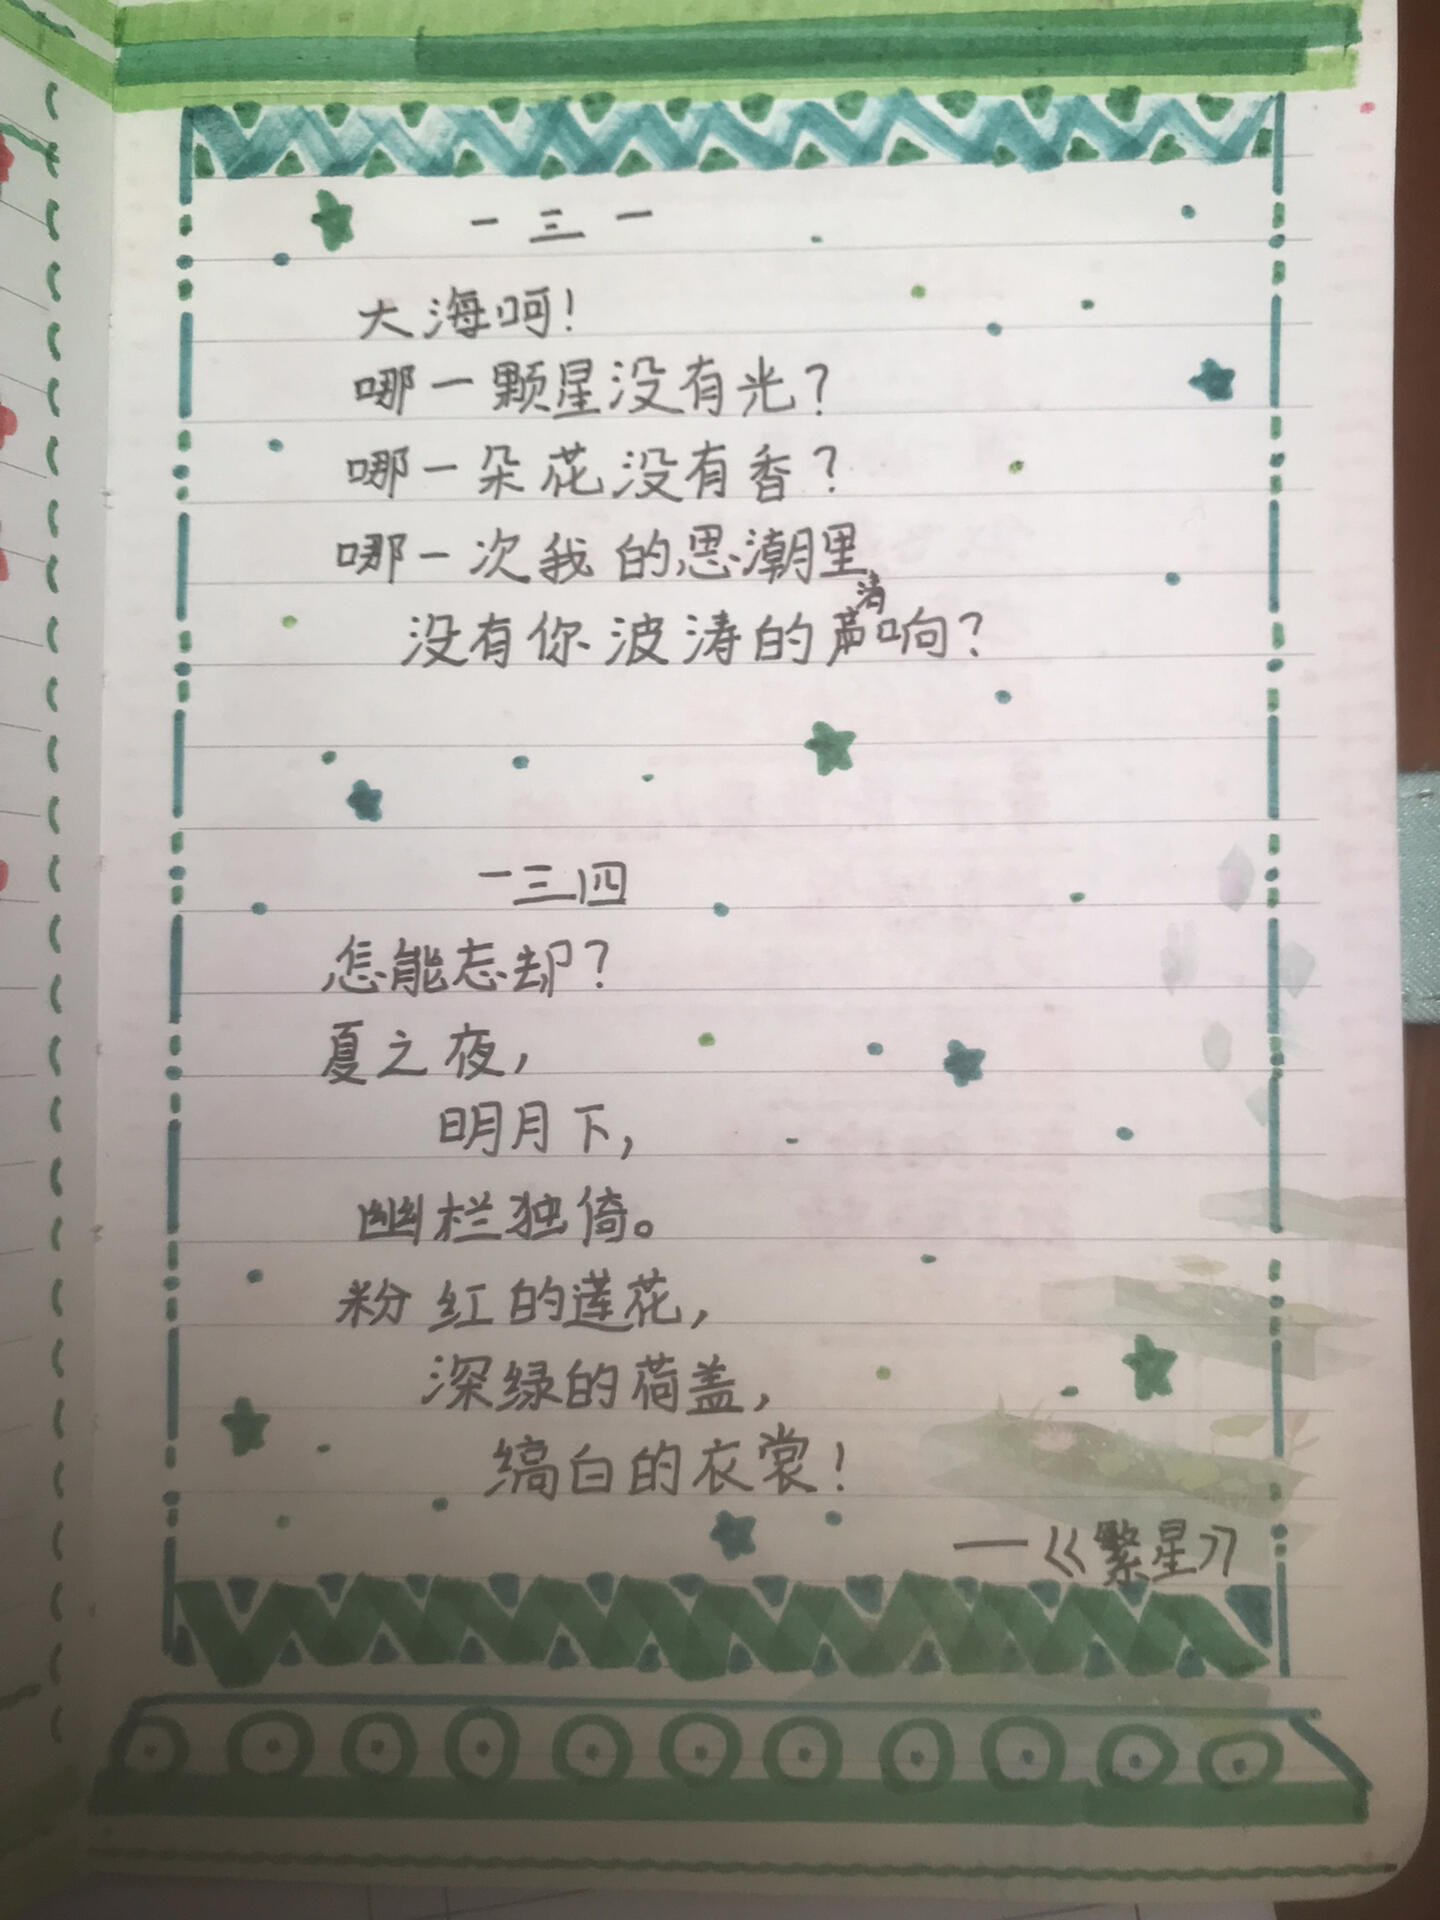 一三一
大海呵！
哪一颗星没有光？
哪一朵花没有香？
哪一次我的思潮里
清
没有你波涛的声响？
一三四
怎能忘却？
夏之夜，
明月下，
幽栏独倚。
粉红的莲花，
深绿的荷盖，
缟白的衣裳！
——《繁星》